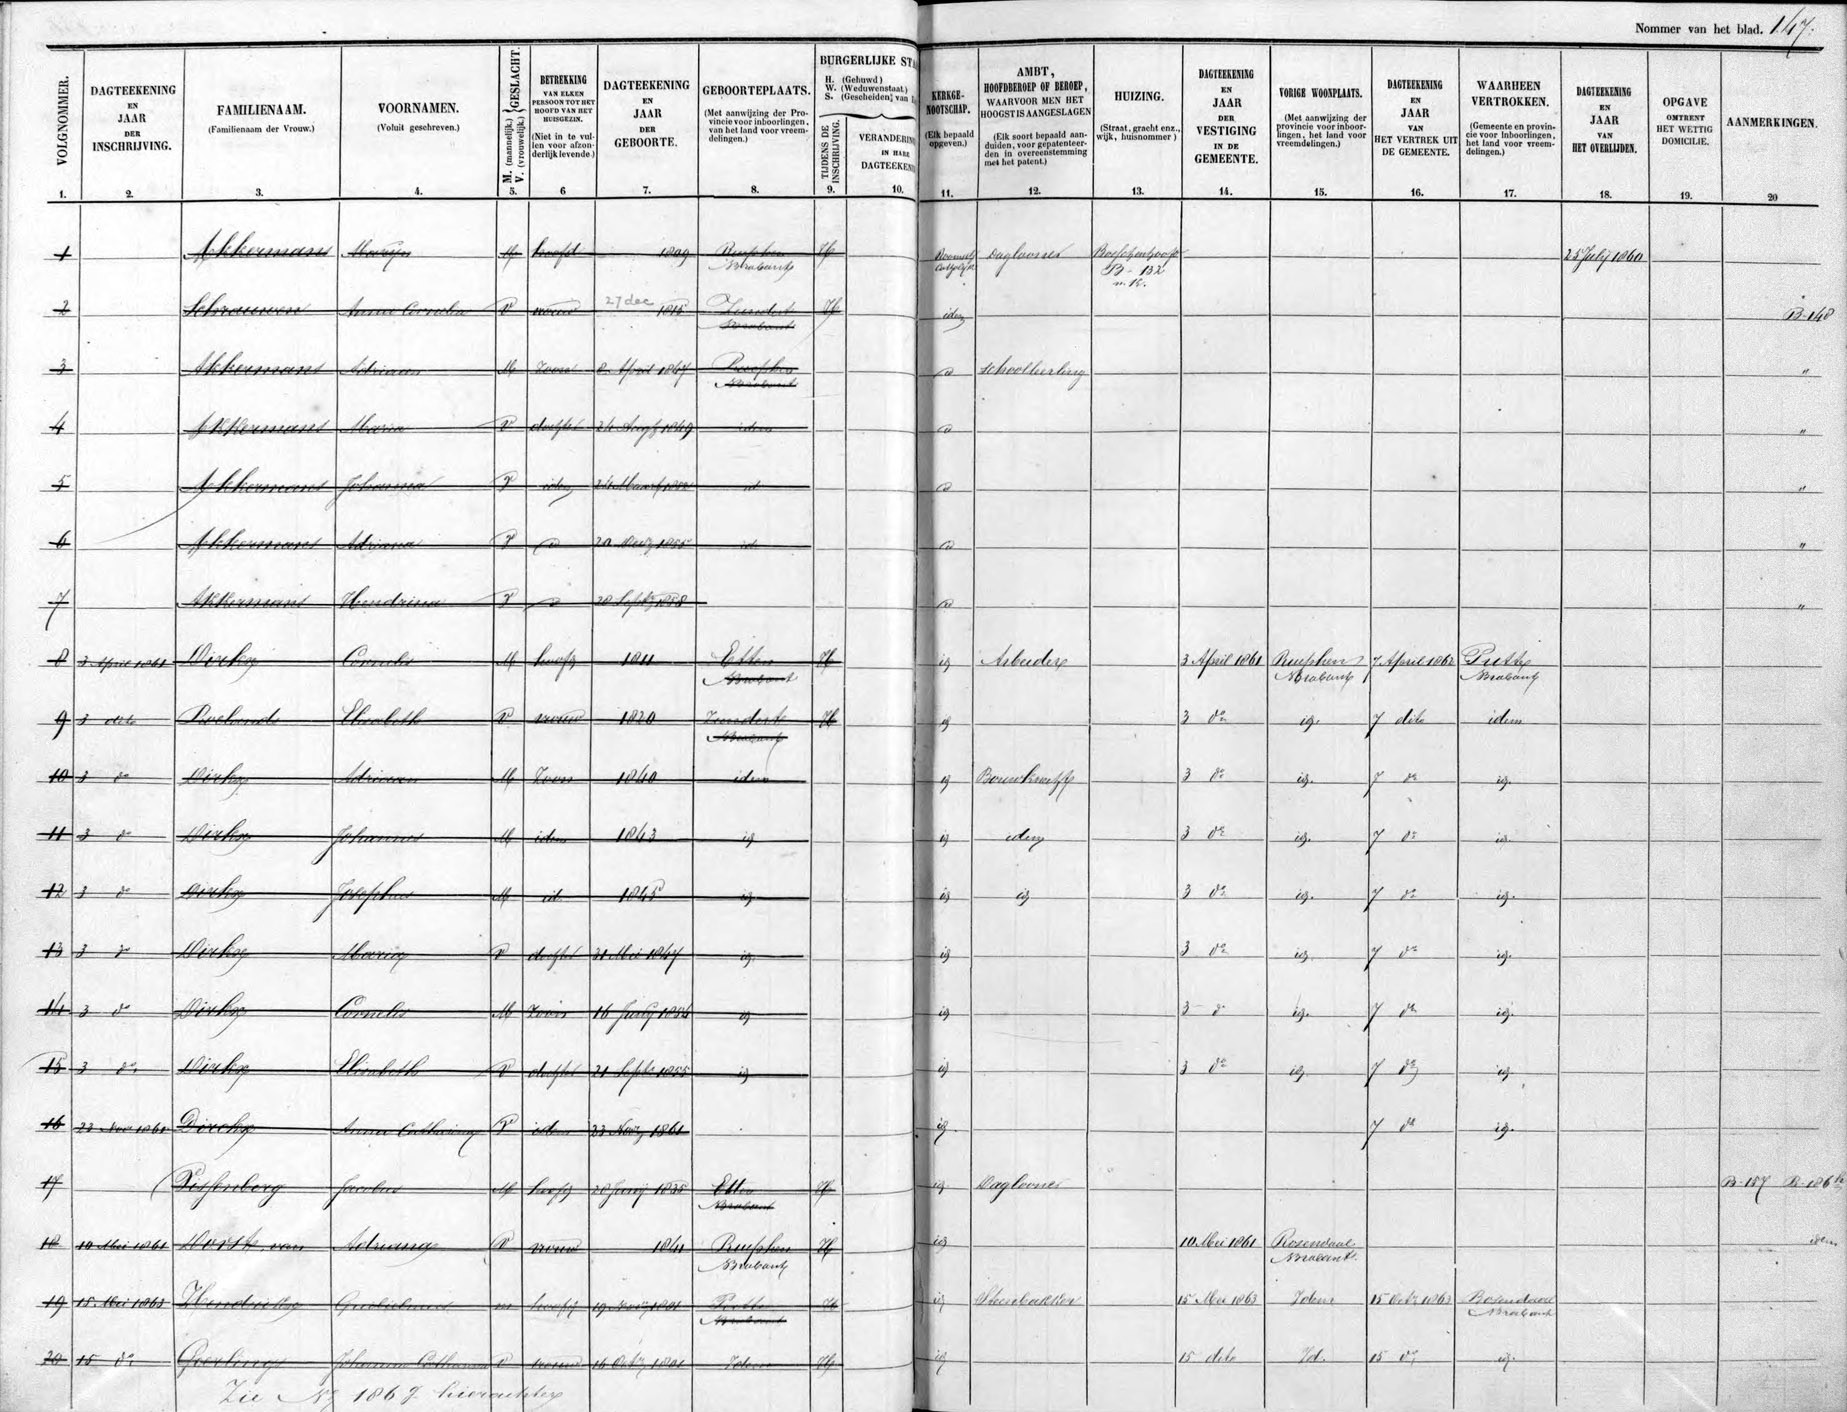 Nommer van het blad. 147.
VOLGNOMMER. 1.
DAGTEEKENING EN JAAR DER INSCHRIJVING. 2.
FAMILIENAAM. (Familienaam der Vrouw.) 3.
VOORNAMEN. (Voluit geschreven.) 4.
M. (mannelijk.) V. (vrouwelijk.) GESLACHT. 5.
BETREKKING VAN ELKEN PERSOON TOT HET HOOFD VAN HET HUISGEZIN. (Niet in te vullen voor afzonderlijk levende.) 6
DAGTEEKENING EN JAAR DER GEBOORTE. 7.
GEBOORTEPLAATS. (Met aanwijzing der Provincie voor inboorlingen, van het land voor vreemdelingen.) 8.
BURGERLIJKE STA
H. (Gehuwd) W. (Weduwenstaat.) S. (Gescheiden, van
TIJDENS DE INSCHRIJVING. 9.
VERANDERIN IN HARE DAGTEEKEN 10.
KERKGENOOTSCHAP. (Elk bepaald opgeven.) 11.
AMBT, HOOFDBEROEP OF BEROEP, WAARVOOR MEN HET HOOGST IS AANGESLAGEN (Elk soort bepaald aanduiden, voor gepatenteerden in overeenstemming met het patent.) 12.
HUIZING. (Straat, gracht enz., wijk, huisnommer) 13.
DAGTEEKENING EN JAAR DER VESTIGING IN DE GEMEENTE. 14.
VORIGE WOONPLAATS. (Met aanwijzing der provincie voor inboorlingen, het land voor vreemdelingen.) 15.
DAGTEEKENING EN JAAR VAN HET VERTREK UIT DE GEMEENTE. 16.
WAARHEEN VERTROKKEN. (Gemeente en provincie voor inboorlingen, het land voor vreemdelingen.) 17.
DAGTEEKENING EN JAAR VAN HET OVERLIJDEN. 18.
OPGAVE OMTRENT HET WETTIG DOMICILIE. 19.
AANMERKINGEN. 20
1 Akkermans Marijn M hoofd 1809 Rucphen NBrabant H Daglooner B-132 25 July 1860
2 Schrauwen Anna Cornelia V vrouw 27 dec 1815 Zundert NBrabant H idem B-148
3 Akkermans Adriaan M Zoon 8 April 1847 Rucphen NBrabant d schoolleerling "
4 Akkermans Maria V dochter 24 Aug 1849 idem d "
5 Akkermans Johanna V idem 24 Maart id d "
6 Akkermans Adriana V d 1855 id d "
7 Akkermans Hendrina V d 20 Sept 1858 d "
8 3 April 1861 Dirkx Cornelis M hoofd 1811 Etten NBrabant H id Arbeider 3 April 1861 Rucphen NBrabant 7 April 1862 Putte NBrabant
9 3 dito Roelands Elisabeth V vrouw 1820 Zundert NBrabant H id 3 do id. 7 dito idem
10 3 do Dirkx Adriaan M Zoon 1840 idem id Bouwknecht 3 do id. 7 do id.
11 3 do Dirkx Johannes M idem 1843 id id idem 3 do id. 7 do id.
12 3 do Dirkx Josephus M id 1845 id id id 3 do id. 7 do id.
13 3 do Dirkx Maria V dochter 31 Mei 1847 id. id 3 do id. 7 do id.
14 3 do Dirkx Cornelis M Zoon 16 July id id 3 d id. 7 do id.
15 3 do Dirkx Elisabeth V dochter 21 Sept 1855 id id 3 do id 7 do id.
16 23 Nov 1861 Dirckx Anna Catharina V idem 23 Nov 1861 id 7 do id.
17 Pissenberg Jacobus M hoofd 1835 Etten NBrabant H id Daglooner B-157 B-186
18 10 Mei 1861 Dorst, van Adriana V vrouw 1841 Rucphen NBrabant H id 10 Mei 1861 Rosendaal NBrabant. idem
19 15 Mei 1863 Hendrikx Gulielmus m hoofd 19 1801 Putte NBrabant H id Steenbakker 15 Mei 1863 Idem 15 Octr 1863 Rosendaal NBrabant
20 15 do Geerlings Johanna Catharina V vrouw 16 Octr 1801 Idem H id 15 dito Id. 15 do id.
Zie No 186 hierachter